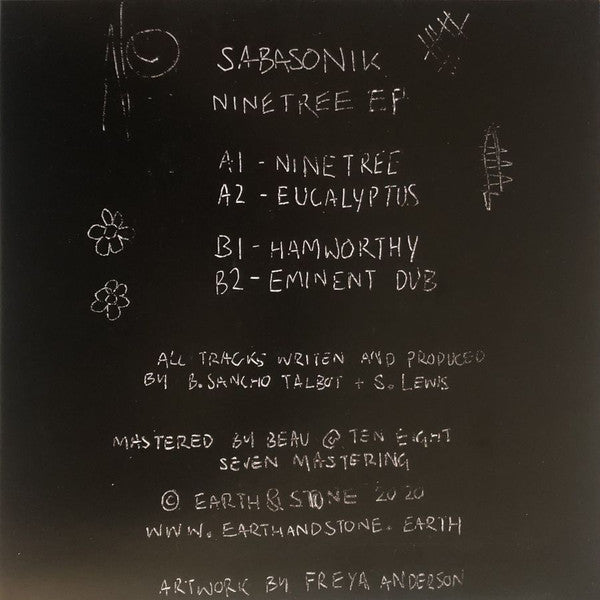 SABASONIK
NINETREE EP
A1 - NINETREE
A2 - EUCALYPTUS
B1 - HAMWORTHY
B2 - EMINENT DUB
ALL TRACKS WRITEN AND PRODUCED
BY B. SANCHO TALBOT + S. LEWIS
MASTERED BY BEAU @ TEN EIGHT
SEVEN MASTERING
© EARTH & STONE 2020
WWW. EARTHANDSTONE. EARTH
ARTWORK BY FREYA ANDERSON